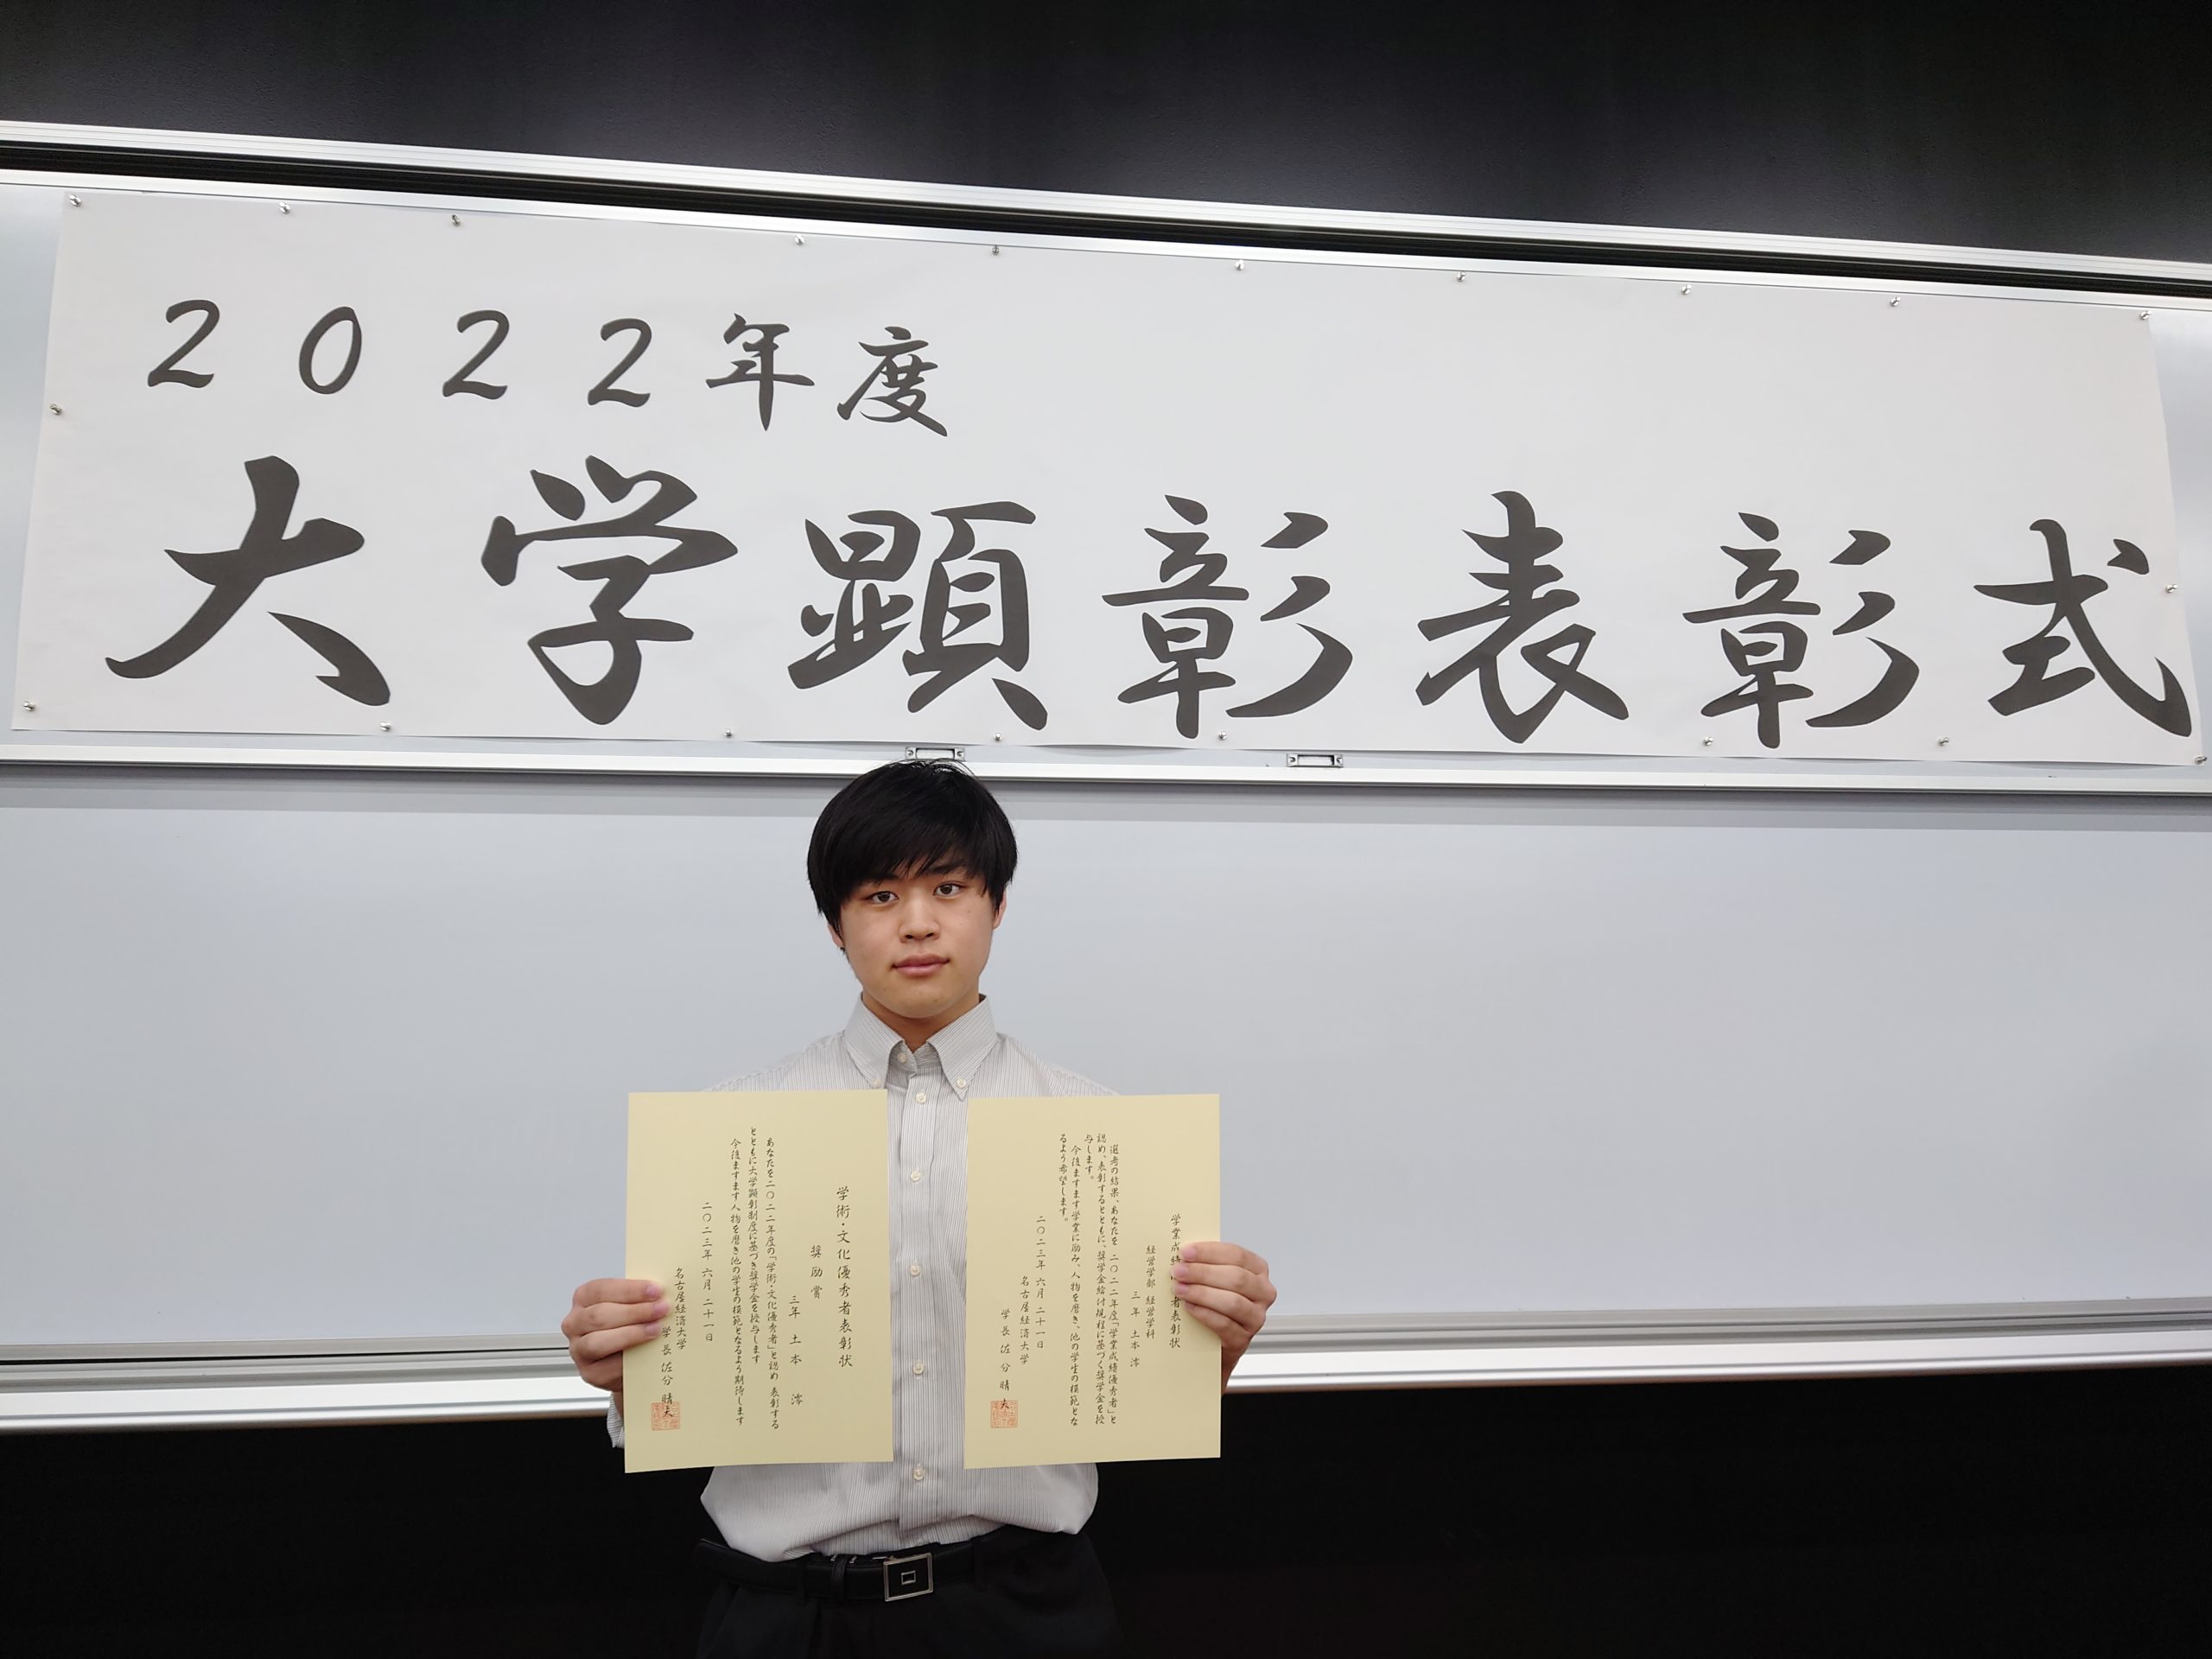 2022年度
大学顕彰表彰式
学術・文化優秀者表彰状
奨励賞
三年 土本 澪
あなたを二〇二二年度の「学術・文化優秀者」と認め 表彰する
とともに大学顕彰制度に基づき奨学金を授与します
今後ますます人物を磨き他の学生の模範となるよう期待します
二〇二三年 六月 二十一日
名古屋経済大学
学長 佐分 晴夫
学業成績 者表彰状
経営学部 経営学科
三年 土本 澪
選考の結果、あなたを 二〇二二年度「学業成績優秀者」と
認め、表彰するとともに、奨学金給付規程に基づく奨学金を授
与します。
今後ますます学業に励み、人物を磨き、他の学生の模範とな
るよう希望します。
二〇二三年 六月 二十一日
名古屋経済大学
学長 佐分 晴夫